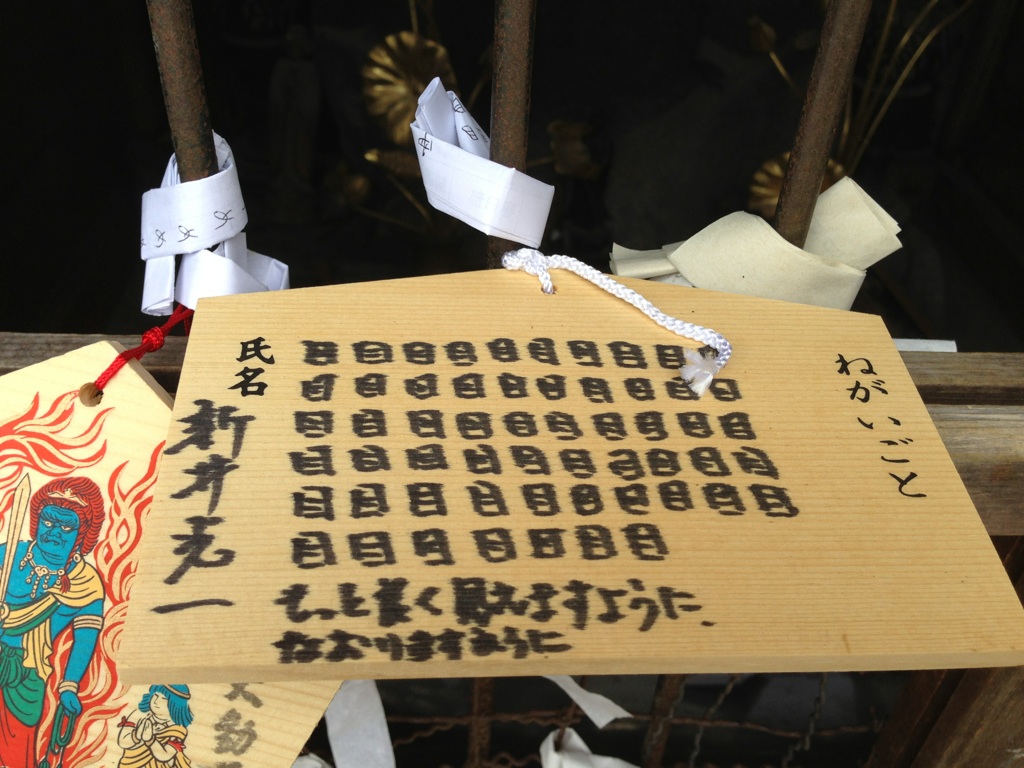 ねがいごと
氏名
新井
一
目目目目目目目目目
目目目目目目目目目目
目目目目目目目目目目
目目目目目目目目目目
目目目目目目目目目目
目目目目目目目
もっと く見えますように、
なおりますように
動